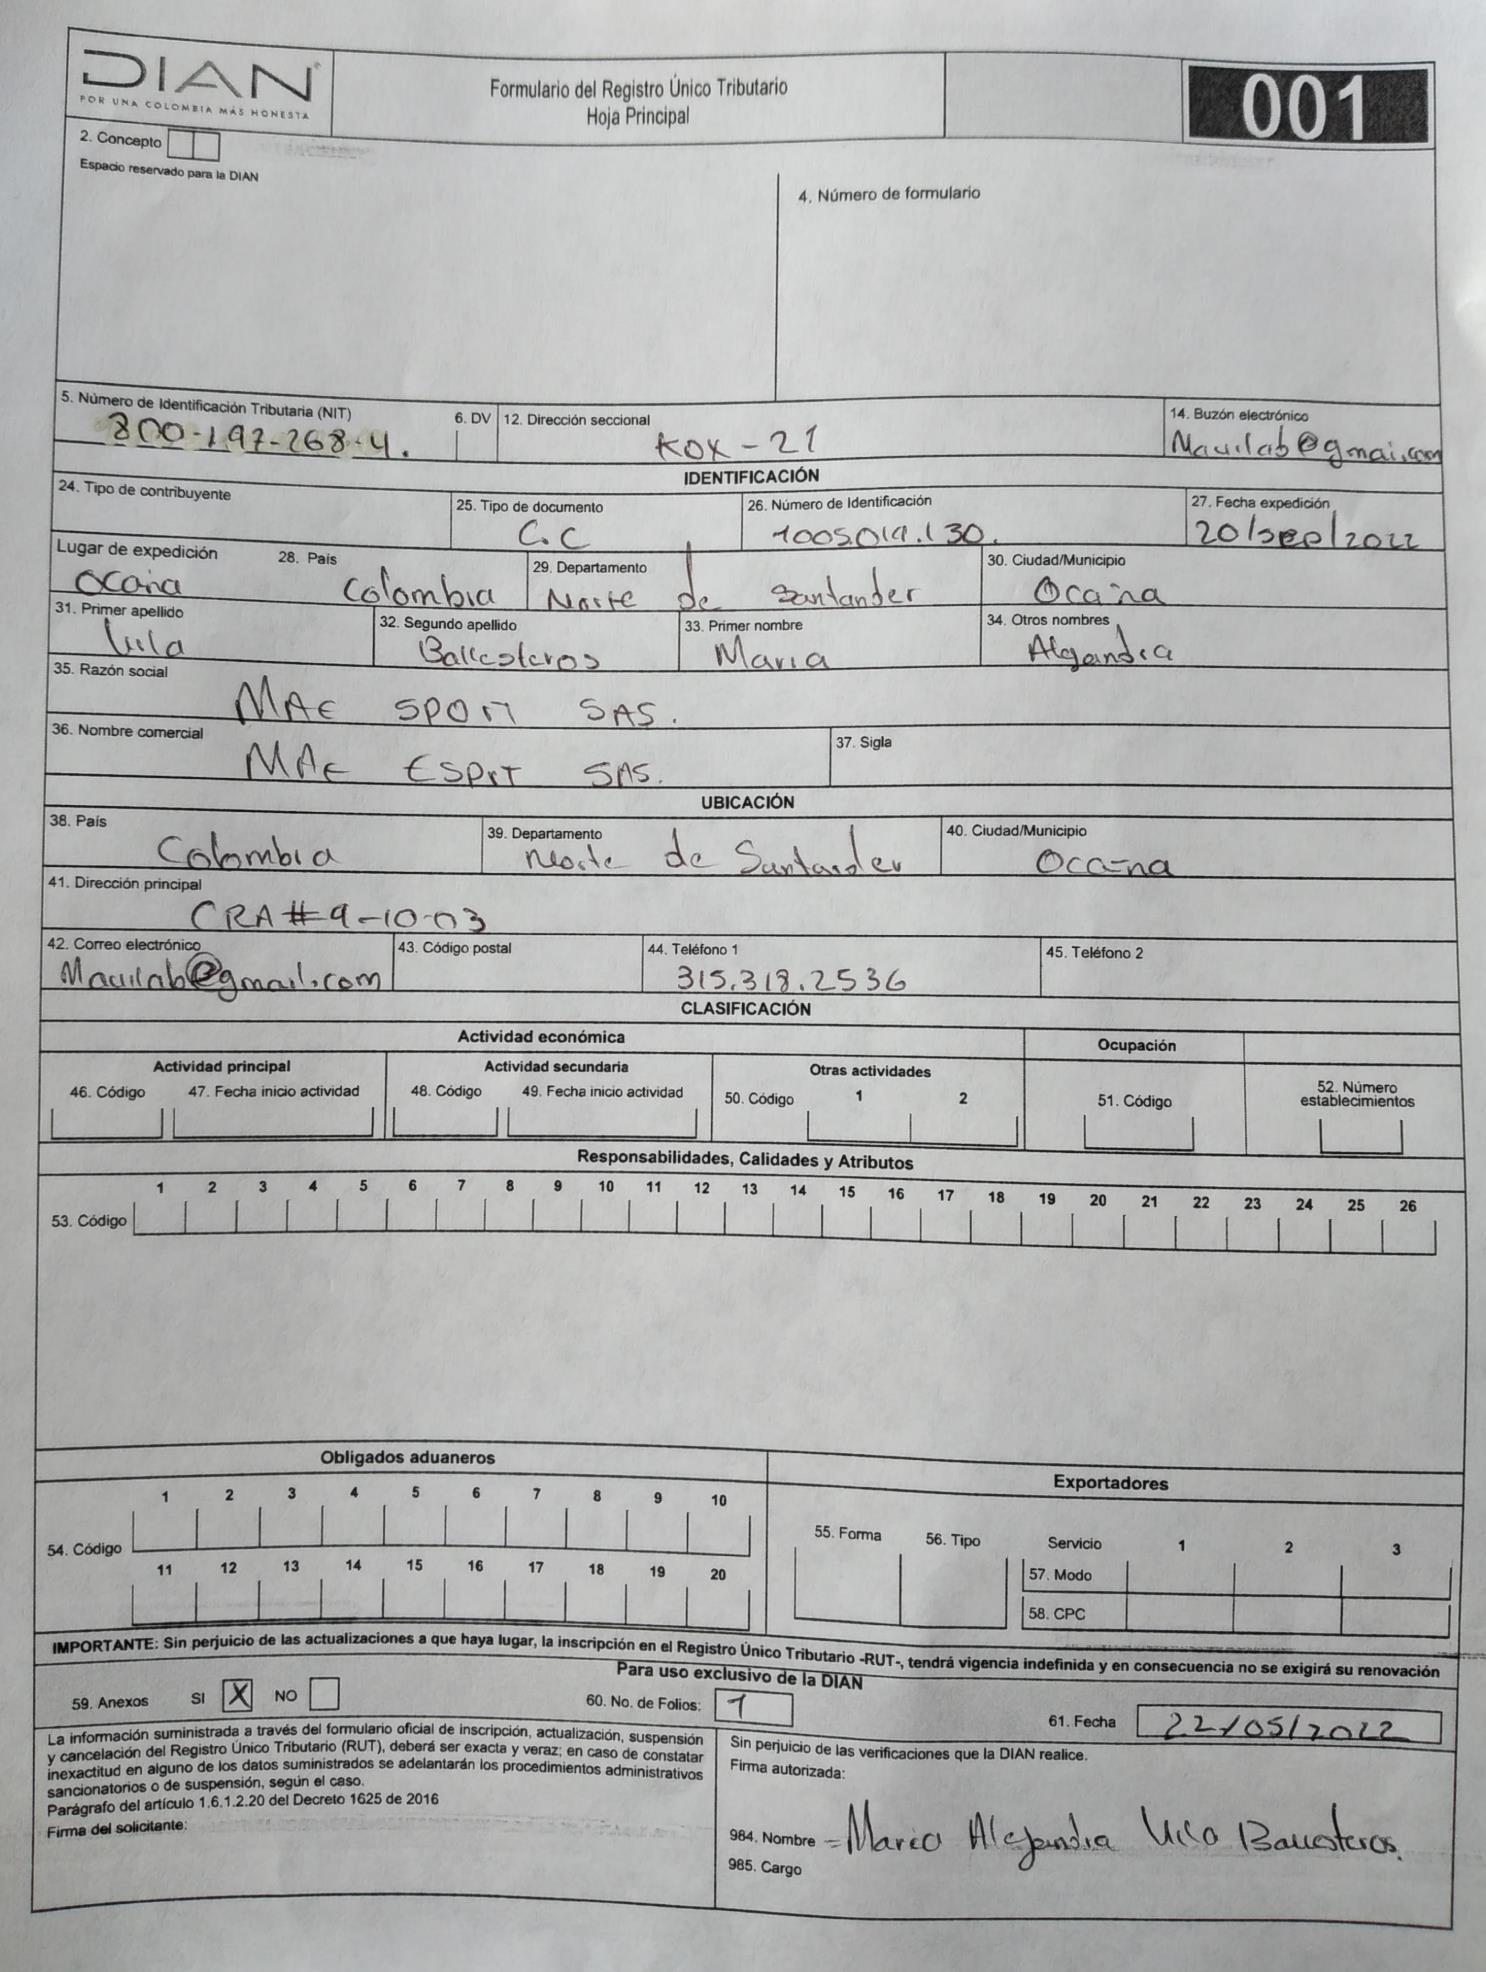 DIAN
POR UNA COLOMBIA MÁS HONESTA
Formulario del Registro Único Tributario
Hoja Principal
001
2. Concepto
Espacio reservado para la DIAN
4. Número de formulario
5. Número de Identificación Tributaria (NIT)
800-197-268-4.
6. DV
12. Dirección seccional
KOX-21
14. Buzón electrónico
Mavilab@gmai.com
IDENTIFICACIÓN
24. Tipo de contribuyente
25. Tipo de documento
C.C
26. Número de Identificación
1005.019.130.
27. Fecha expedición
20/sep/2022
Lugar de expedición
Ocaña
28. País
Colombia
29. Departamento
Norte de Santander
30. Ciudad/Municipio
Ocaña
31. Primer apellido
Vila
32. Segundo apellido
Ballesteros
33. Primer nombre
Maria
34. Otros nombres
Alejandra
35. Razón social
MAE SPORT SAS.
36. Nombre comercial
MAE ESPRT SAS.
37. Sigla
UBICACIÓN
38. País
Colombia
39. Departamento
Norte de Santander
40. Ciudad/Municipio
Ocaña
41. Dirección principal
CRA#9-10-03
42. Correo electrónico
Mavilab@gmail.com
43. Código postal
44. Teléfono 1
315.318.2536
45. Teléfono 2
CLASIFICACIÓN
Actividad económica
Ocupación
Actividad principal
Actividad secundaria
Otras actividades
46. Código 47. Fecha inicio actividad
48. Código 49. Fecha inicio actividad
50. Código 1 2
51. Código
52. Número
establecimientos
Responsabilidades, Calidades y Atributos
1 2 3 4 5 6 7 8 9 10 11 12 13 14 15 16 17 18 19 20 21 22 23 24 25 26
53. Código
Obligados aduaneros
Exportadores
1 2 3 4 5 6 7 8 9 10
54. Código
11 12 13 14 15 16 17 18 19 20
55. Forma
56. Tipo
Servicio 1 2 3
57. Modo
58. CPC
IMPORTANTE: Sin perjuicio de las actualizaciones a que haya lugar, la inscripción en el Registro Único Tributario -RUT-, tendrá vigencia indefinida y en consecuencia no se exigirá su renovación
Para uso exclusivo de la DIAN
59. Anexos SI X NO
60. No. de Folios: 1
61. Fecha 22/05/2022
La información suministrada a través del formulario oficial de inscripción, actualización, suspensión
y cancelación del Registro Único Tributario (RUT), deberá ser exacta y veraz; en caso de constatar
inexactitud en alguno de los datos suministrados se adelantarán los procedimientos administrativos
sancionatorios o de suspensión, según el caso.
Parágrafo del artículo 1.6.1.2.20 del Decreto 1625 de 2016
Firma del solicitante:
Sin perjuicio de las verificaciones que la DIAN realice.
Firma autorizada:
984. Nombre = Maria Alejandra Vila Ballesteros.
985. Cargo